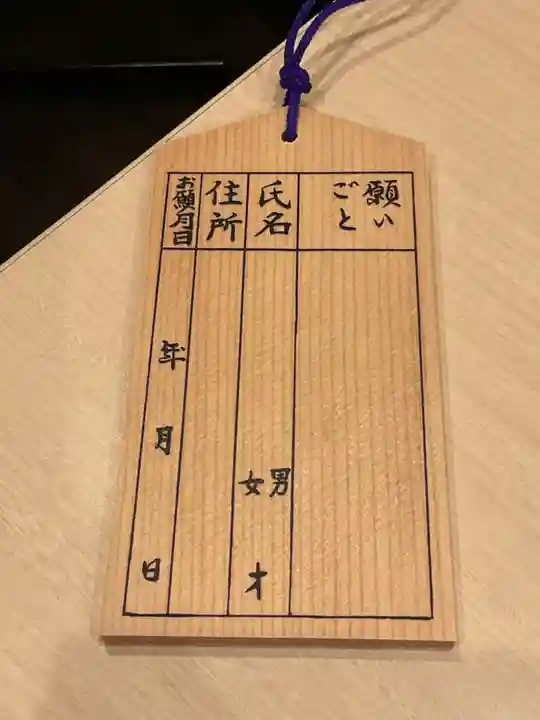 願い
ごと
氏名
男
女
才
住所
お願月日
年
月
日